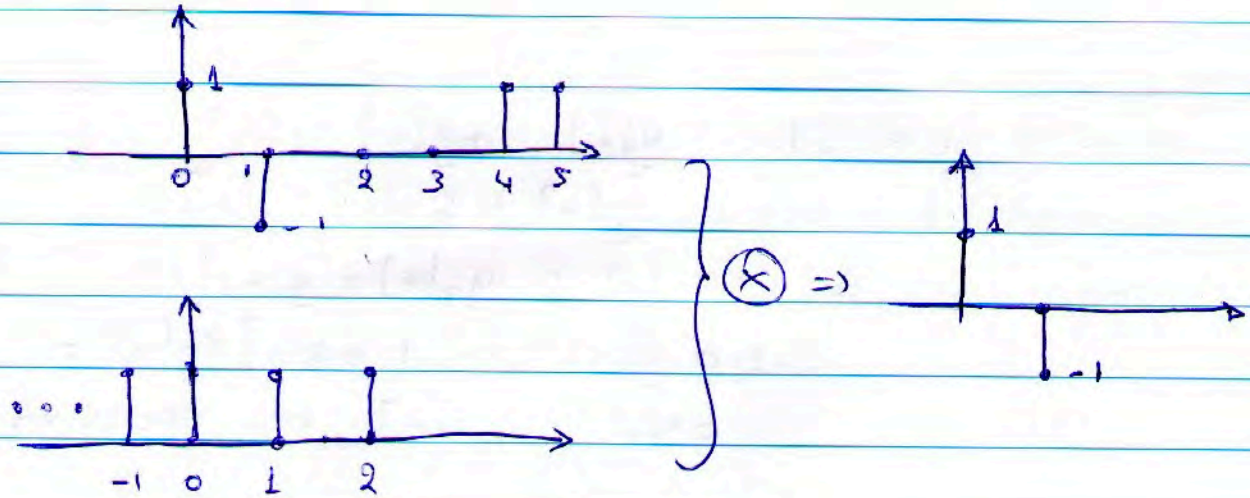 1
0 1 2 3 4 5
-1
x =>
1
-1
...
-1 0 1 2